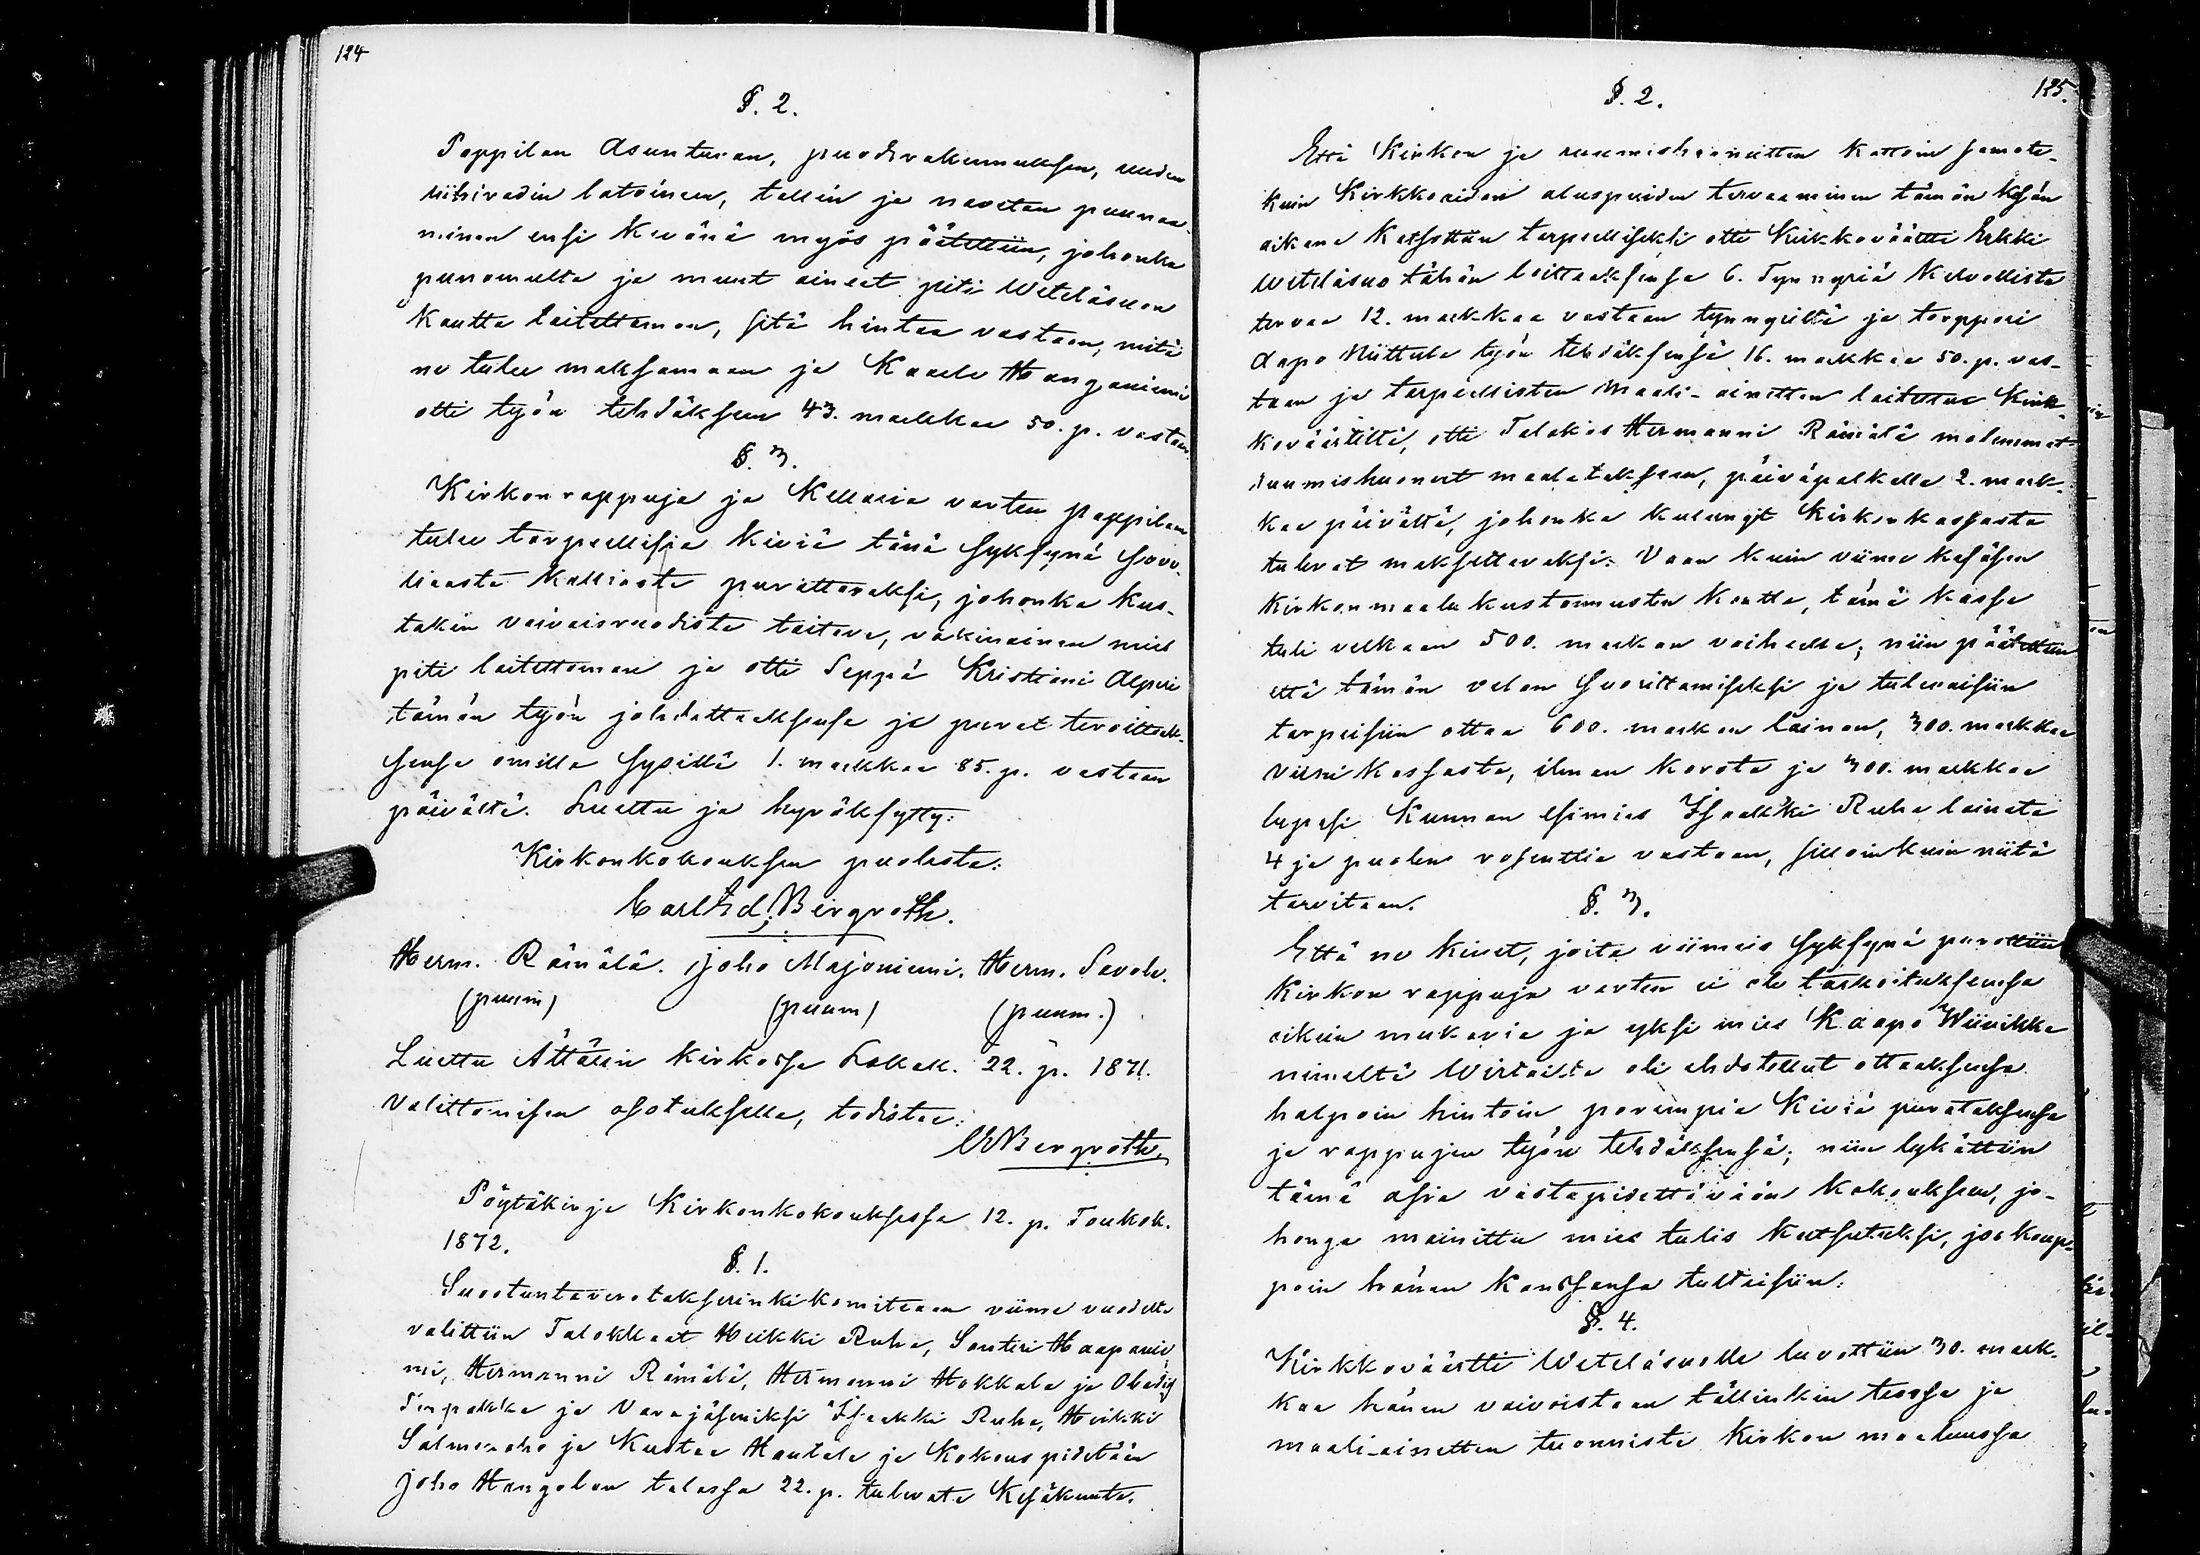 124
§. 2.
Pappilan Asuntusan, puodirakennuksen, uuden
riihiradin latoineen, tallin ja navetan punaa-
minen ensi Kevänä myös päätettiin, johonka
punamulta ja muut aineet piti Weteläsuon
Kautta laitettaman, sitä hintaa vastaan, mitä
ne tulee maksamaan ja Kaarlo Hanganiemi
otti työn tehdäksen 43. markkaa 50. p. vastaan.
§. 3.
Kirkonrappuja ja Kellaria varten pappilaan
tulee tarpeellisia Kiviä tänä syksynä sovo-
liaasta Kalliosta purattavaksi, johonka Kus-
takin vaivaisruodista taitava, väkinäinen mies
piti laitettaman ja otti Seppä Kristiani Alperi
tämän työn johdattaaksensa ja purat teroittaak-
sensa omilla sysillä 1. markkaa 85. p. vastaan
päivältä. Luettu ja hyväksytty:
Kirkonkokouksen puolesta:
Carl Ed. Bergroth.
Herm. Rämälä. Joho Majoniemi. Herm. Savola.
(puum) (puum) (puum.)
Luettu Ättärin Kirkossa Lokak. 22. p. 1871.
Valittamisen osotuksella, todistaa:
CEBergroth.
Pöytäkirja Kirkonkokouksessa 12. p. Toukok.
1872.
§. 1.
Suostuntaverotakseerinkikomiteaan viime vuodelta
valittiin Talokkaat Heikki Ruha, Santeri Haapanie-
mi, Hermanni Rämälä, Hermanni Hokkala ja Obedig
ja Varajäseniksi Isaakki Ruha, Heikki
ja Kustaa Hautala ja Kokous pidetään
Joho Hangolan talossa 22. p. tulevata Kesäkuuta.
125.
§. 2.
Että Kirkon ja ruumishuoneitten Kattoin samate-
kuin Kirkkoaidan aluspuiden tervaaminen tämän Kesän
aikana Katsottiin tarpeelliseksi otti Kirkkoväärtti Erkki
Weteläsuo tähän laittaaksensa 6. Tynnyriä Kelvollista
tervaa 12. markkaa vastaan tynnyriltä ja torppari
Aapo Niittula työn tehdäksensä 16. markkaa 50. p. vas-
taan ja tarpeellisten Maali-ainetten laitettua Kirk-
koväärtiltä, otti Talokas Hermanni Rämälä molemmat
ruumishuonert maalataksen, päiväpalkalla 2. mark-
kaa päivältä, johonka Kulungit Kirkonkassasta
tulevat maksettavaksi: Vaan kuin viime kesäsen
Kirkonmaalu kustannusten Kautta, tämä Kassa
tuli velkaan 500. markan vaiheella; niin päätettiin
että tämän velan suorittamiseksi ja tulevaisiin
tarpeisiin ottaa 600. markan lainan, 300. markkaa
Kassasta, ilman Korota ja 300. markkaa
lupasi Kunnan esimies Isaakki Ruha lainata
4 ja puolen rosenttia vastaan, silloinkuin niitä
tarvitaan.
§. 3.
Että ne Kivet, joita viimeis syksynä purottiin
Kirkon rappuja varten ei ole tarkoituksensa
oikein mukavia ja yksi mies Kaapo Wiivikka
nimeltä Wirtailta oli ehdotellut ottaaksensa
halpoin hintoin parempia Kiviä purataksensa
ja rappujen työn tehdäksensä; niin lykättiin
tämä asia vastapidettävään Kokouksen, jo-
honga mainittu mies tulis Kutsutuksi, jos Kaup-
poin hänen Kanssansa tultaisiin:
§. 4.
Kirkkoväärtti Wetelásuolle luvattiin 30. mark-
kaa hänen vaivoistaan tällinkin teossa ja
maali-ainetten tuonnista Kirkon maaluussa